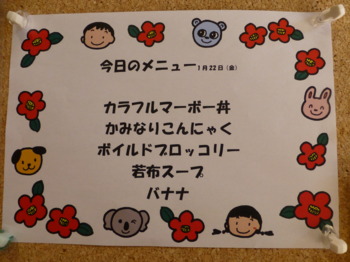 今日のメニュー1月22日(金)
カラフルマーボー丼
かみなりこんにゃく
ボイルドブロッコリー
若布スープ
バナナ